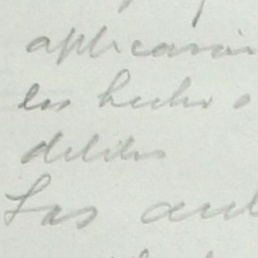 aplicación
los hecho o
delitos
Las aut